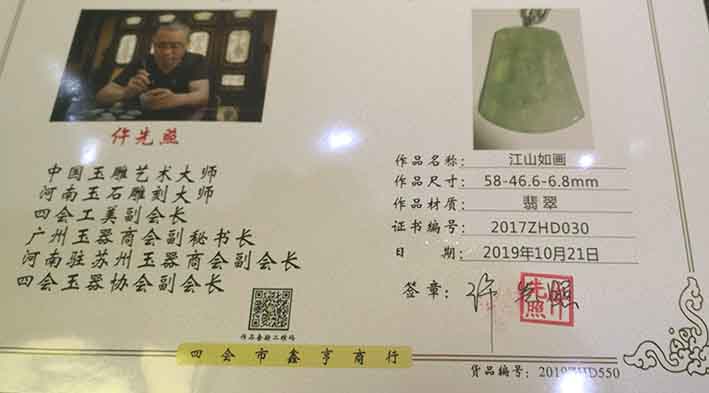 仵先照
中国玉雕艺术大师
河南玉石雕刻大师
四会工美副会长
广州玉器商会副秘书长
河南驻苏州玉器商会副会长
四会玉器协会副会长
作品查验二维码
作品名称: 江山如画
作品尺寸: 58-46.6-6.8mm
作品材质: 翡翠
证书编号: 2017ZHD030
日 期: 2019年10月21日
签章: 仵先照
四会市鑫亨商行
货品编号: 2019ZHD550